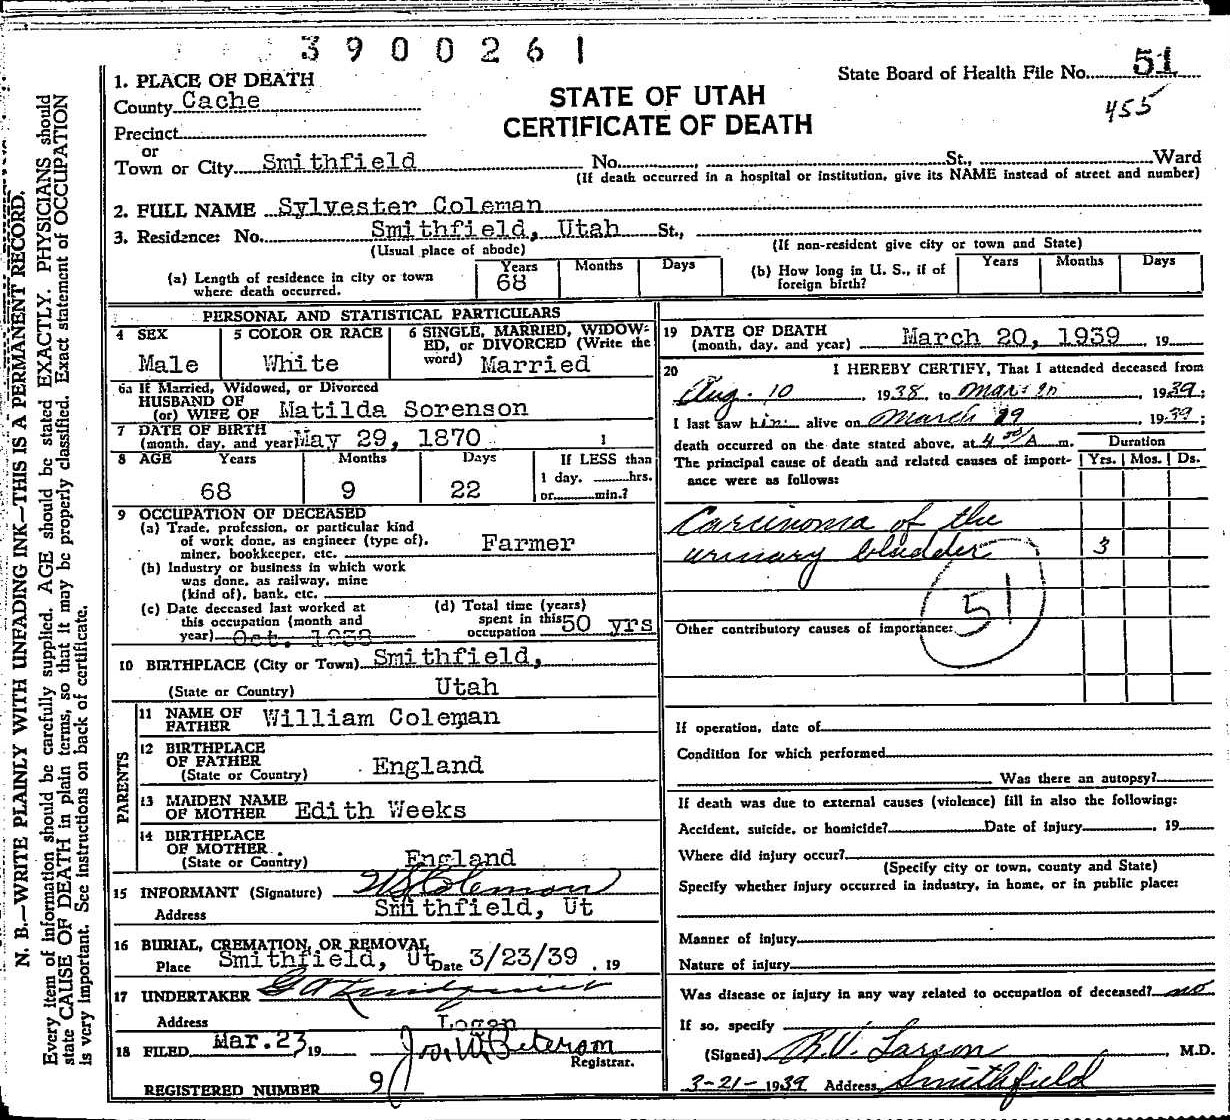 3900261
State Board of Health File No. 51
455
1. PLACE OF DEATH
County Cache
STATE OF UTAH
CERTIFICATE OF DEATH
Precinct
or
Town or City Smithfield No. , St., Ward
(If death occurred in a hospital or institution, give its NAME instead of street and number)
2. FULL NAME Sylvester Coleman
3. Residence: No. Smithfield, Utah St.,
(Usual place of abode) (If non-resident give city or town and State)
(a) Length of residence in city or town where death occurred. Years 68 Months Days
(b) How long in U. S., if of foreign birth? Years Months Days
PERSONAL AND STATISTICAL PARTICULARS
4 SEX Male
5 COLOR OR RACE White
6 SINGLE, MARRIED, WIDOW-
ED, or DIVORCED (Write the
word) Married
6a If Married, Widowed, or Divorced
HUSBAND OF
(or) WIFE OF Matilda Sorenson
7 DATE OF BIRTH
(month, day, and year) May 29, 1870
8 AGE Years Months Days If LESS than
1 day, hrs.
or min.?
68 9 22
9 OCCUPATION OF DECEASED
(a) Trade, profession, or particular kind
of work done, as engineer (type of),
miner, bookkeeper, etc. Farmer
(b) Industry or business in which work
was done, as railway, mine
(kind of), bank, etc.
(c) Date deceased last worked at
this occupation (month and
year) Oct. 1938
(d) Total time (years)
spent in this
occupation 50 yrs
10 BIRTHPLACE (City or Town) Smithfield,
(State or Country) Utah
PARENTS
11 NAME OF
FATHER William Coleman
12 BIRTHPLACE
OF FATHER
(State or Country) England
13 MAIDEN NAME
OF MOTHER Edith Weeks
14 BIRTHPLACE
OF MOTHER
(State or Country) England
15 INFORMANT (Signature) W S Coleman
Address Smithfield, Ut
16 BURIAL, CREMATION, OR REMOVAL
Place Smithfield, Ut Date 3/23/39 , 19
17 UNDERTAKER
Address Logan
18 FILED Mar. 23 19 Jos. W. Peterson
Registrar.
REGISTERED NUMBER 9
19 DATE OF DEATH
(month, day, and year) March 20, 1939 19
20 I HEREBY CERTIFY, That I attended deceased from
Aug. 10 , 1938, to Mar. 20 , 1939;
I last saw him alive on March 19 , 1939;
death occurred on the date stated above, at 4 30/A m.
The principal cause of death and related causes of import-
ance were as follows:
Duration
Yrs. Mos. Ds.
Carcinoma of the
urinary bladder 3
51
Other contributory causes of importance:
If operation, date of
Condition for which performed
Was there an autopsy?
If death was due to external causes (violence) fill in also the following:
Accident, suicide, or homicide? Date of injury , 19
Where did injury occur?
(Specify city or town, county and State)
Specify whether injury occurred in industry, in home, or in public place:
Manner of injury
Nature of injury
Was disease or injury in any way related to occupation of deceased? no
If so, specify
(Signed) R.V. Larson , M.D.
3-21-1939 Address Smithfield
N. B.—WRITE PLAINLY WITH UNFADING INK—THIS IS A PERMANENT RECORD.
Every item of information should be carefully supplied. AGE should be stated EXACTLY. PHYSICIANS should
state CAUSE OF DEATH in plain terms, so that it may be properly classified. Exact statement of OCCUPATION
is very important. See instructions on back of certificate.